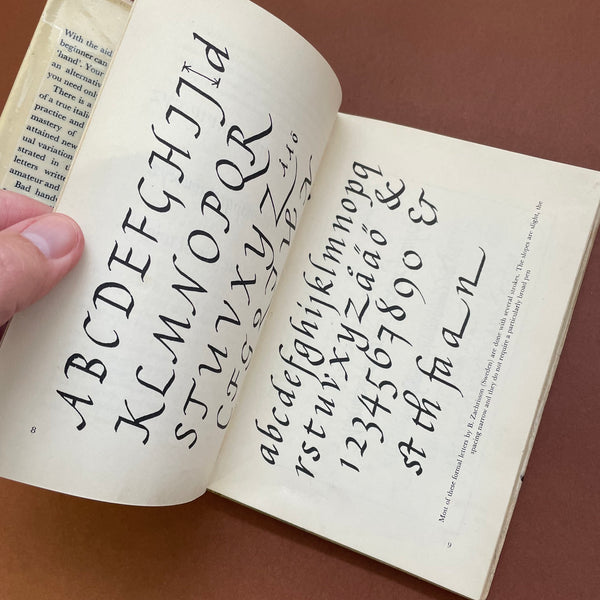 With the aid
beginner can
'hand'. Your
an alternativ
you need onl
There is a
of a true itali
practice and
mastery of
attained new
ual variation
strated in th
letters writte
amateur and
Bad hand
ABCDEFGHIJJd
KLMNOPQR
STUVXYZ
8
abcdefghijklmnopq
rstuvxyzåäö &
1234567890 &
st th fu a n
Most of these formal letters by B. Zachrisson (Sweden) are done with several strokes. The slopes are slight, the
spacing narrow and they do not require a particularly broad pen
9